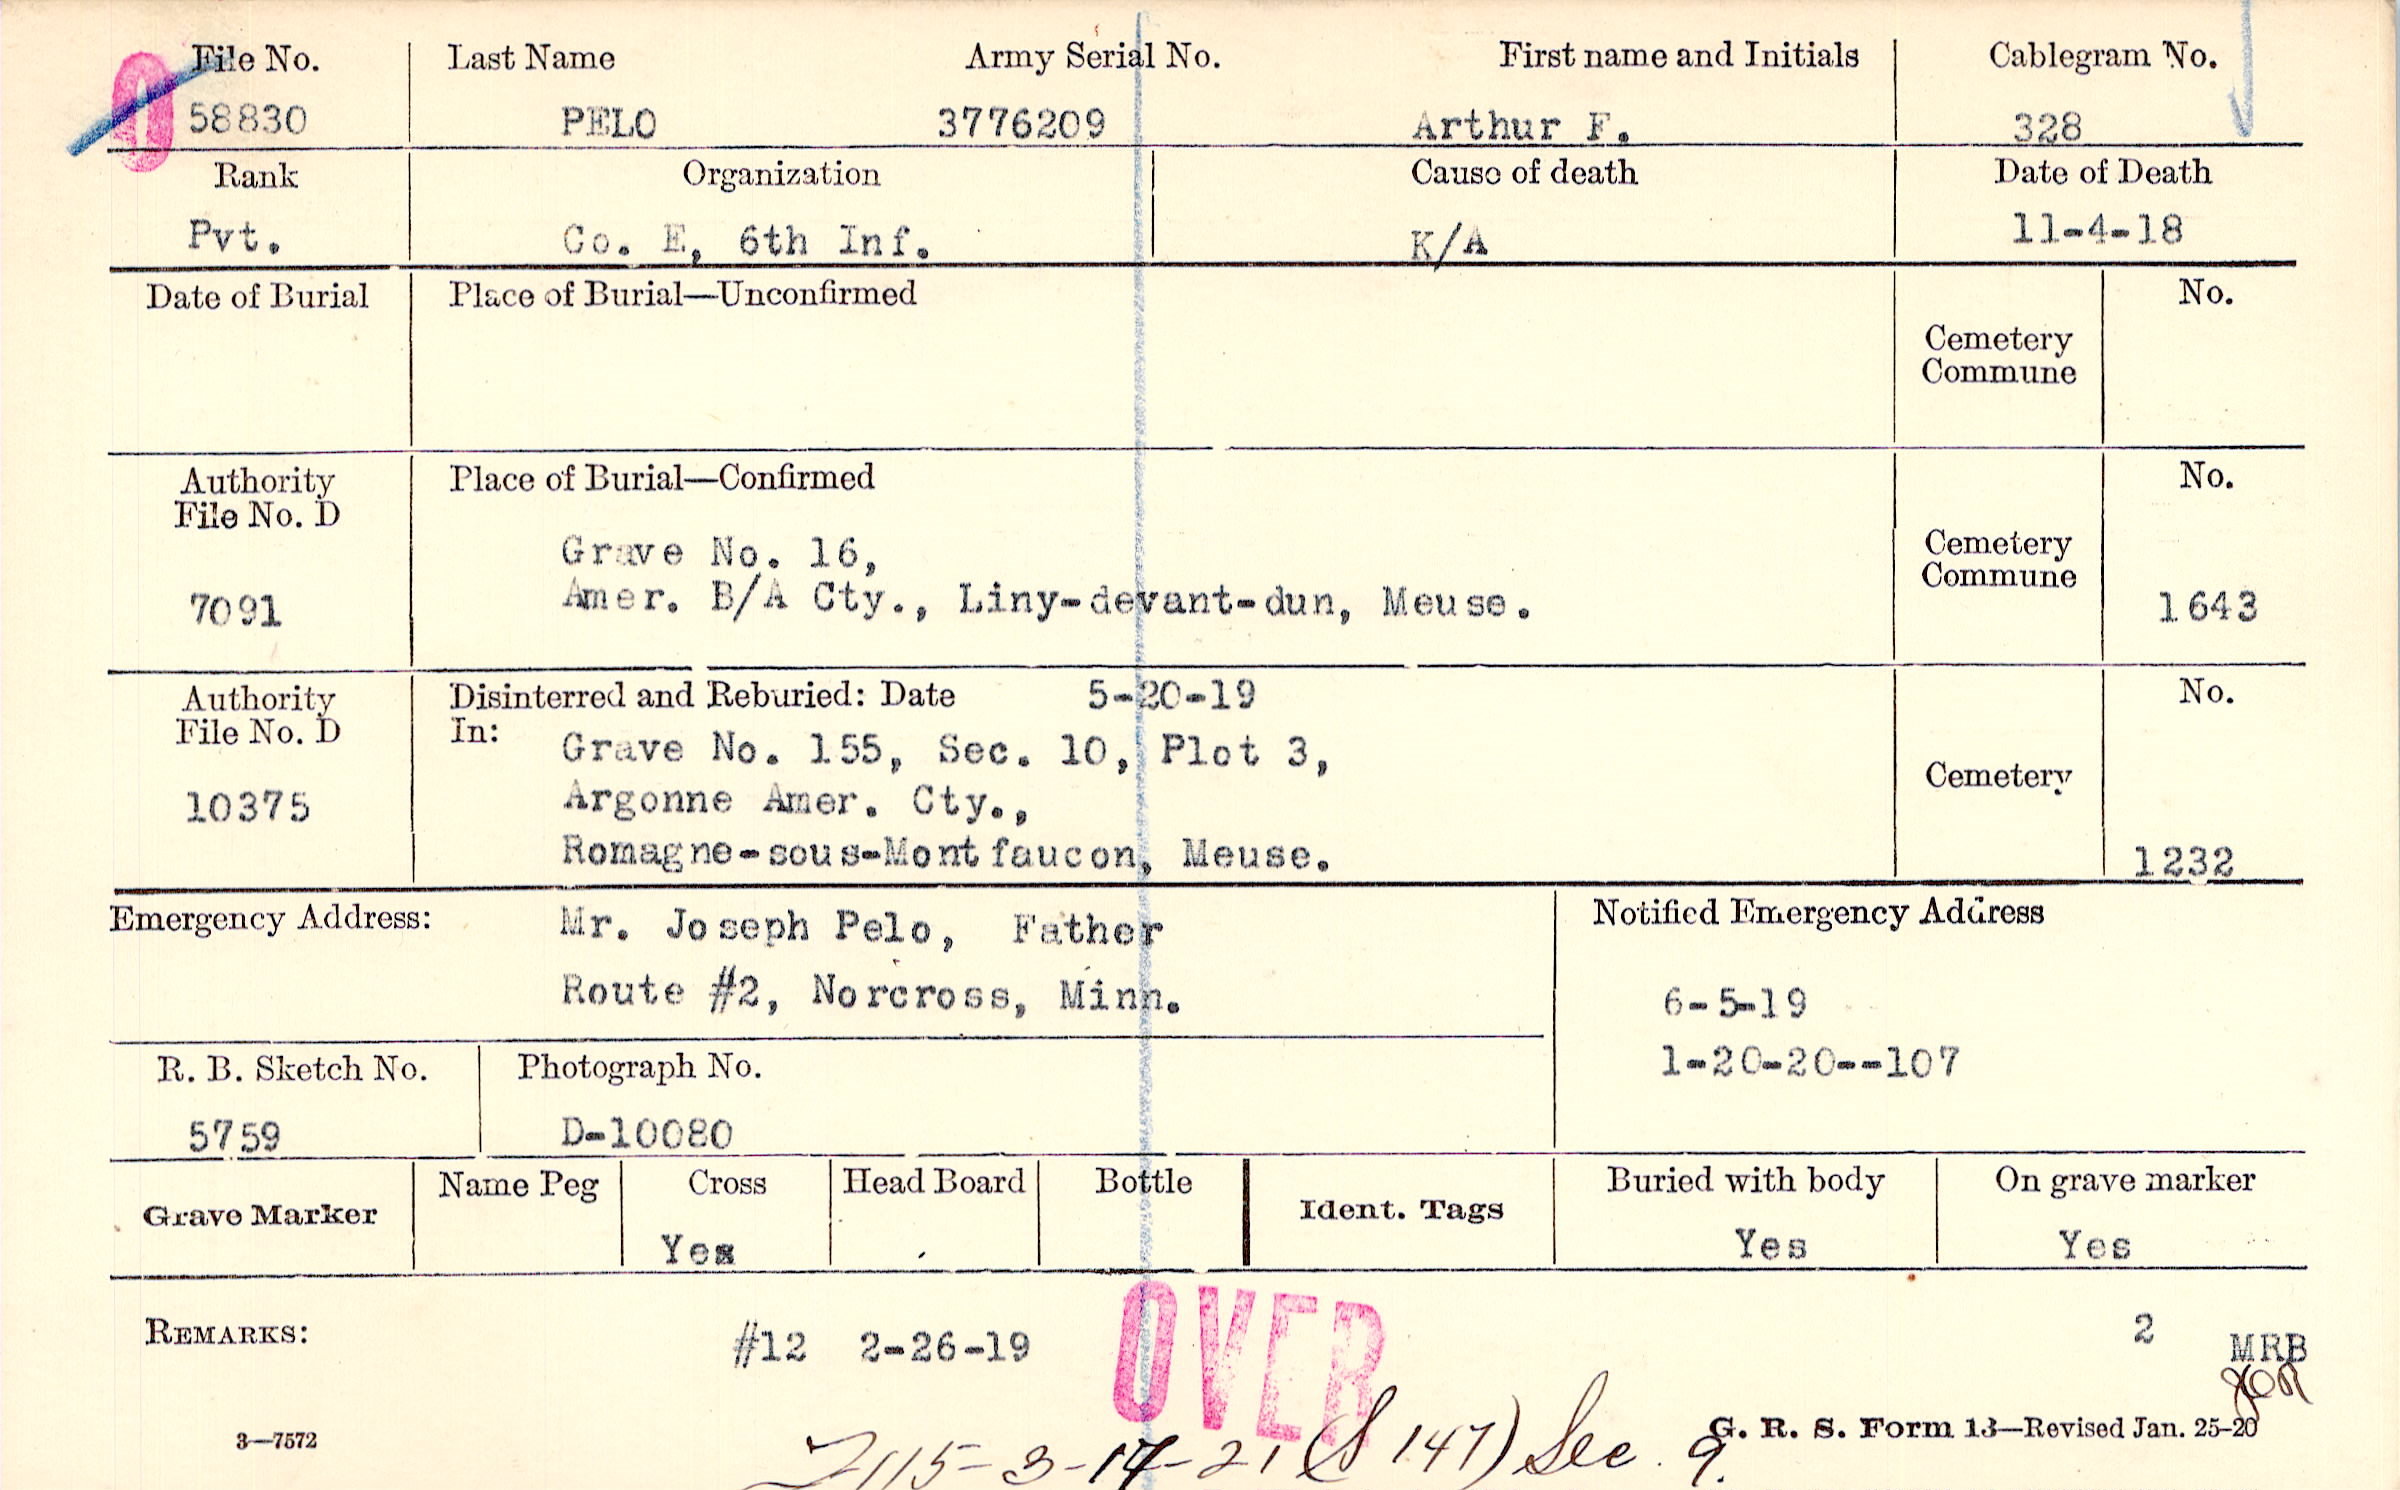 File No. Last Name Army Serial No. First name and Initials Cablegram No.
0
58830 PELO 3776209 Arthur F. 328
Rank Organization Cause of death Date of Death
Pvt. Co. E, 6th Inf. K/A 11-4-18
Date of Burial Place of Burial—Unconfirmed No.
Cemetery
Commune
Authority Place of Burial—Confirmed No.
File No. D
Grave No. 16, Cemetery
7091 Amer. B/A Cty., Liny-devant-dun, Meuse. Commune 1643
Authority Disinterred and Reburied: Date 5-20-19 No.
File No. D In: Grave No. 155, Sec. 10, Plot 3,
10375 Argonne Amer. Cty., Cemetery
Romagne-sous-Montfaucon, Meuse. 1232
Emergency Address: Mr. Joseph Pelo, Father Notified Emergency Address
Route #2, Norcross, Minn. 6-5-19
1-20-20--107
R. B. Sketch No. Photograph No.
5759 D-10080
Grave Marker Name Peg Cross Head Board Bottle Ident. Tags Buried with body On grave marker
Yes Yes Yes
REMARKS: #12 2-26-19 OVER 2 MRB
3—7572 G. R. S. Form 13—Revised Jan. 25-20
115-3-17-21 (S 147) Sec. 9.